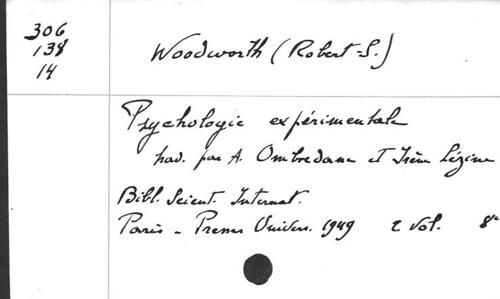 306
138
14
Woodworth (Robert-S.)
Psychologie expérimentale
trad. par A. Ombredane et Irène Lézine
Bibl. Scient. Internat.
Paris - Presses Univers. 1949 2 vol. 8°